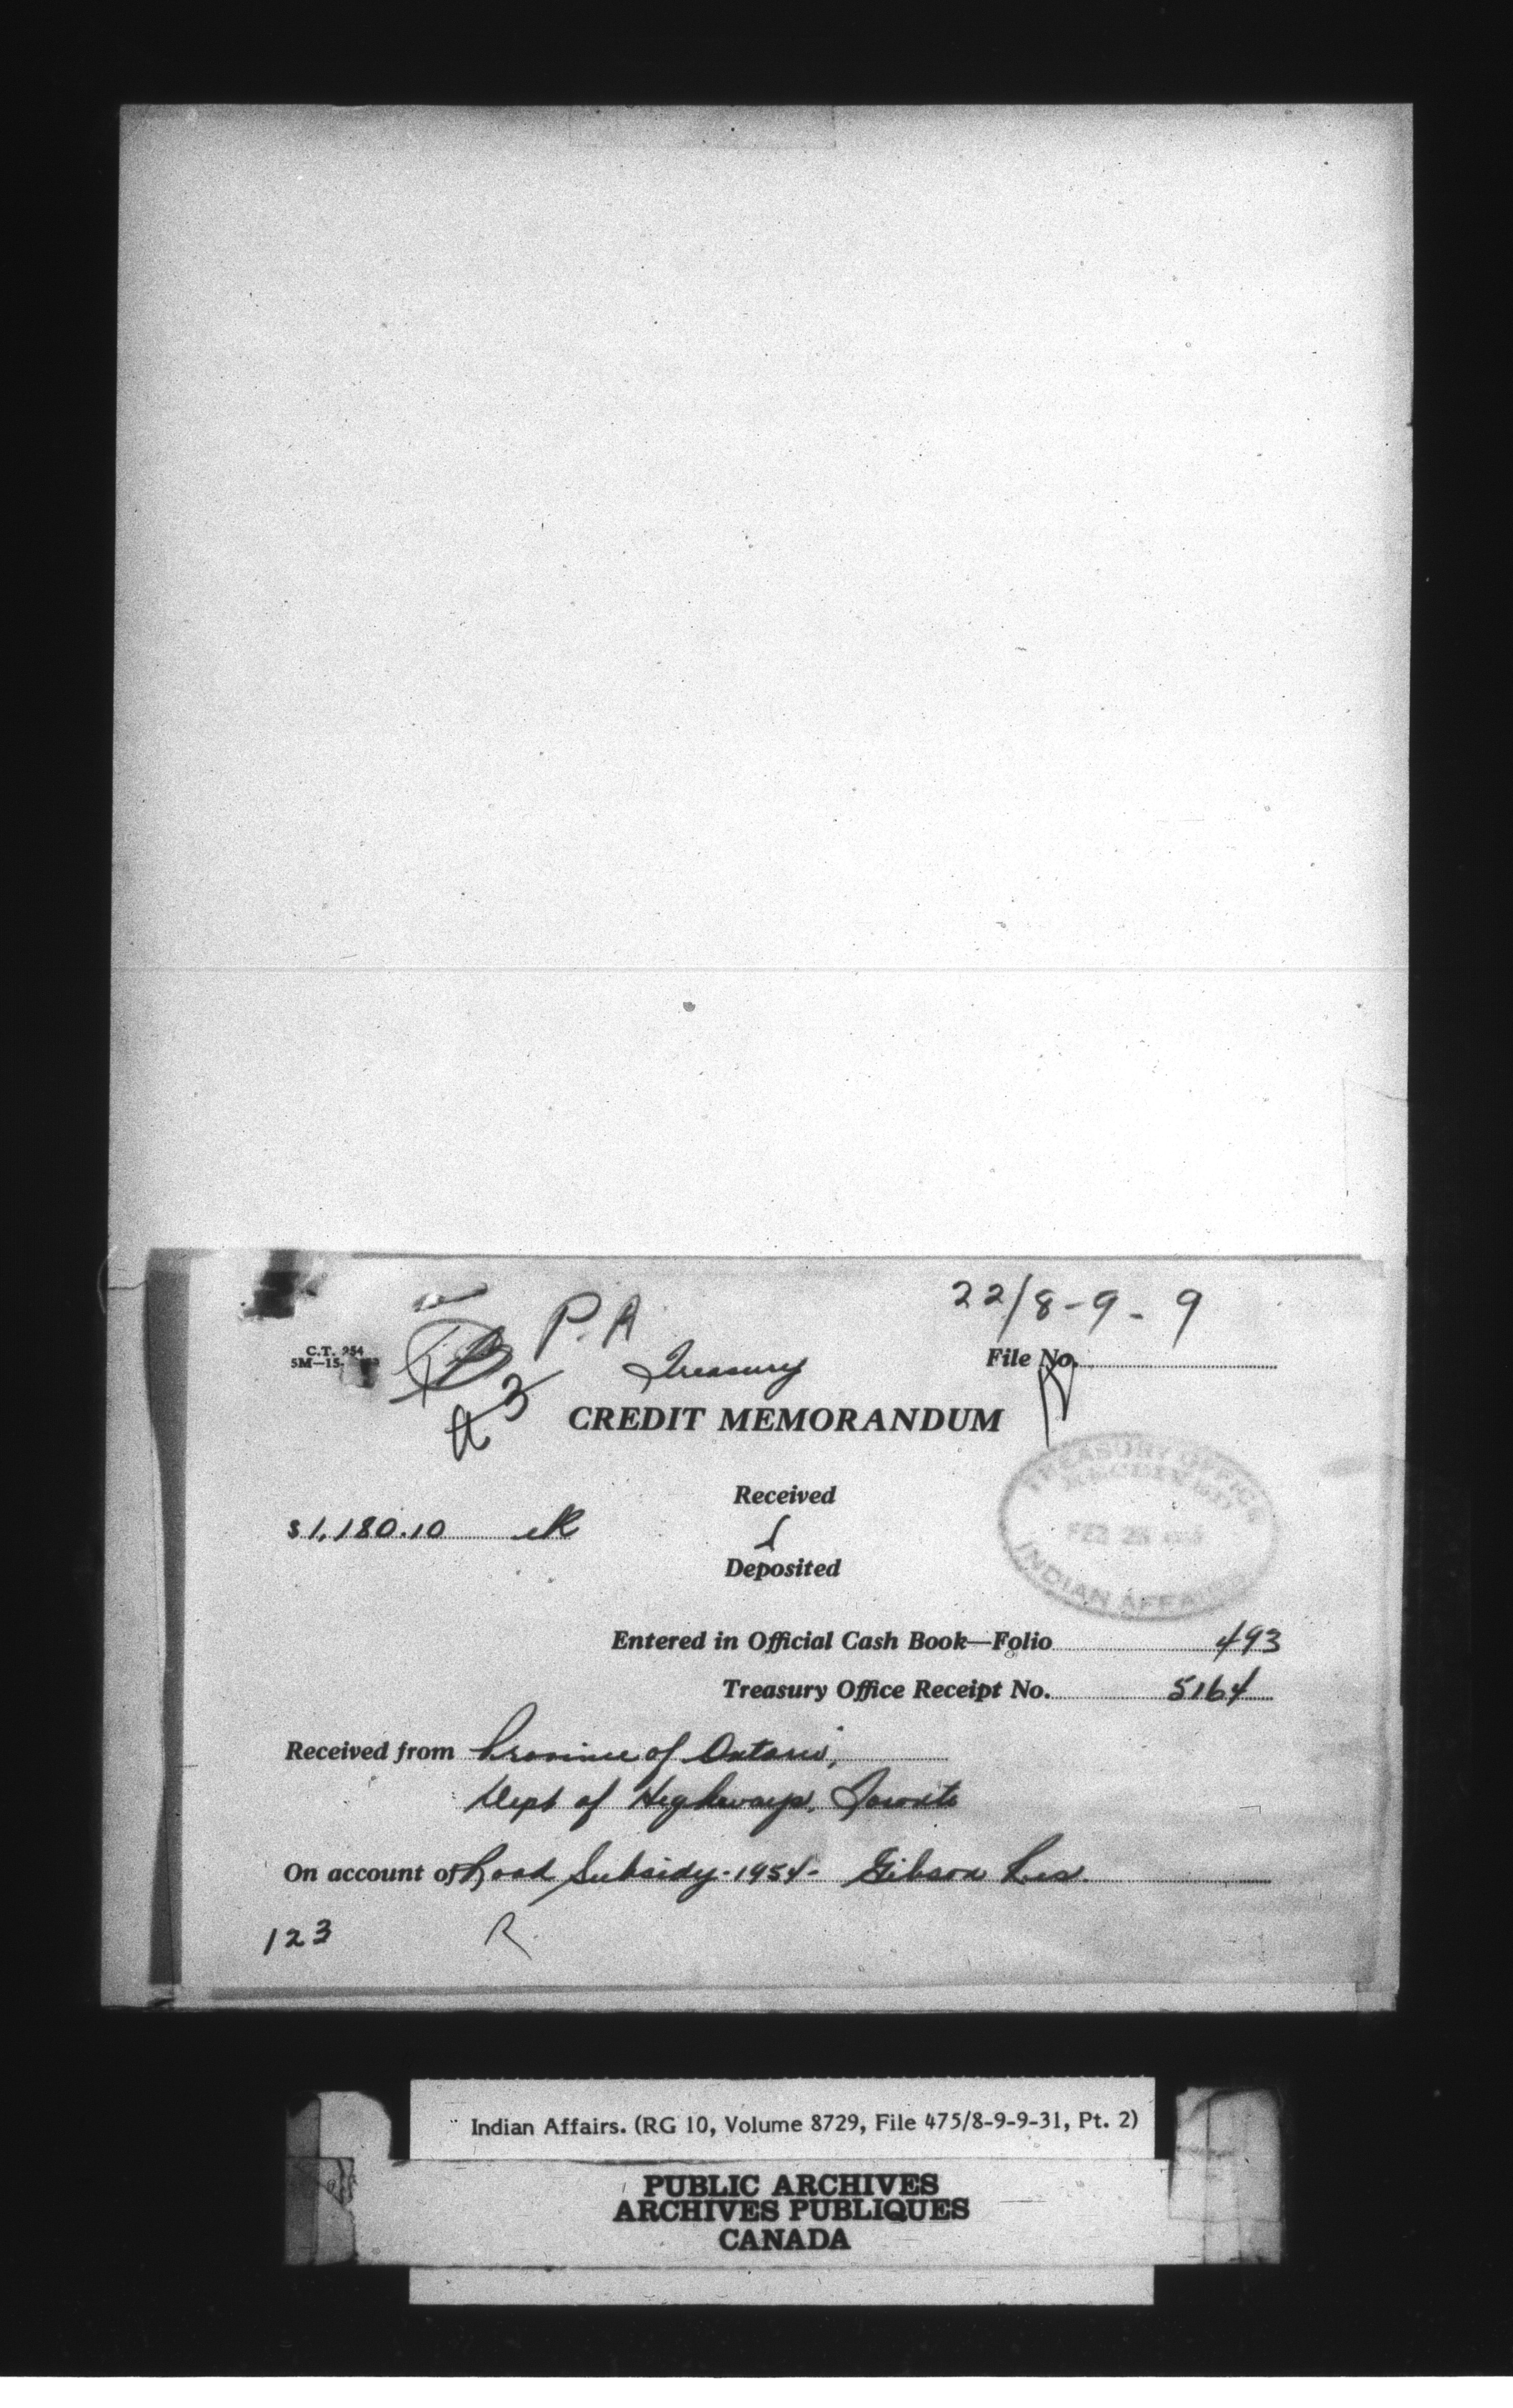 22/8-9-9
P.A
C.T. 254
5M—15-
Treasury
File No.
CREDIT MEMORANDUM
TREASURY OFFICE
RECEIVED
FEB 25
INDIAN AFFAIRS
Received
$1,180.10
Deposited
Entered in Official Cash Book—Folio 493
Treasury Office Receipt No. 5164
Received from Province of Ontario,
Dept of Highways, Toronto
On account of Road Subsidy-1954- Gibson Res.
123 R.
Indian Affairs. (RG 10, Volume 8729, File 475/8-9-9-31, Pt. 2)
PUBLIC ARCHIVES
ARCHIVES PUBLIQUES
CANADA